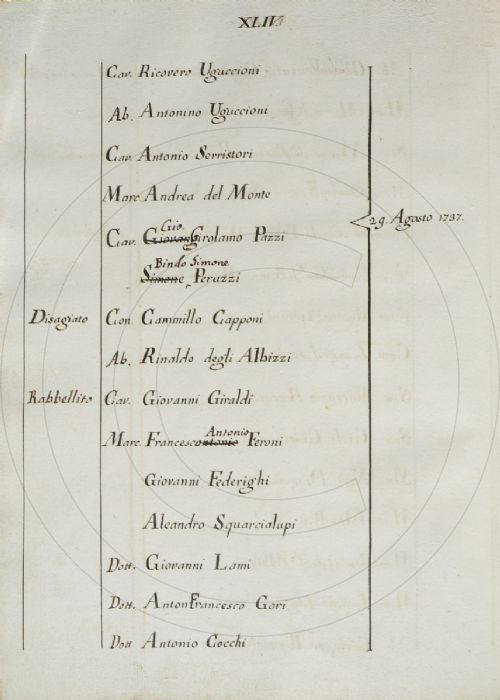 XLIV
Cav. Ricovero Uguccioni
Ab. Antonino Uguccioni
Cav. Antonio Serristori
Marc. Andrea del Monte
29. Agosto 1737.
Gio.
Cav. Giovan Girolamo Pazzi
Bindo Simone
Simone Peruzzi
Disagiato Con. Cammillo Capponi
Ab. Rinaldo degli Albizzi
Rabbellito Cav. Giovanni Giraldi
Antonio
Marc. Francesco Antonio Feroni
Giovanni Federighi
Aleandro Squarcialupi
Dott. Giovanni Lami
Dott. AntonFrancesco Gori
Dott Antonio Cocchi